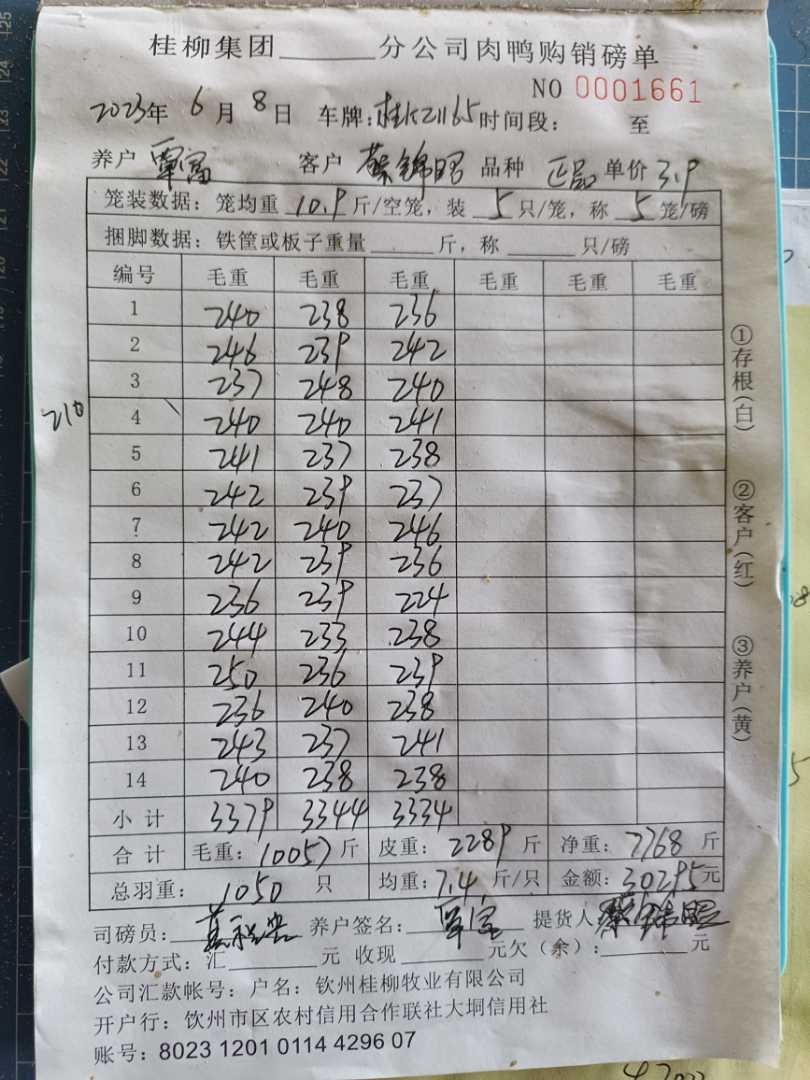 桂柳集团______分公司肉鸭购销磅单
NO 0001661
2023年 6月 8日 车牌: 时间段: 至
养户 覃富 客户 蔡锦昭 品种 正品 单价 3.9
笼装数据: 笼均重 10.9 斤/空笼, 装 5 只/笼, 称 5 笼/磅
捆脚数据: 铁筐或板子重量______斤, 称______只/磅
编号 毛重 毛重 毛重 毛重 毛重 毛重
1 240 238 236
2 246 239 242
3 237 248 240
210
4 240 240 241
5 241 237 238
6 242 239 237
7 242 240 246
8 242 239 236
9 236 239 224
10 244 233 238
11 250 236 239
12 236 240 238
13 243 237 241
14 240 238 238
小计 3379 3344 3334
合计 毛重: 10057斤 皮重: 2289斤 净重: 7768斤
总羽重: 1050 只 均重: 7.4斤/只 金额: 30295元
司磅员: 养户签名: 覃富 提货人 蔡锦昭
付款方式: 汇______元 收现______元欠(余):______元
公司汇款帐号: 户名: 钦州桂柳牧业有限公司
开户行: 钦州市区农村信用合作联社大垌信用社
账号: 8023 1201 0114 4296 07
①存根(白)
②客户(红)
③养户(黄)